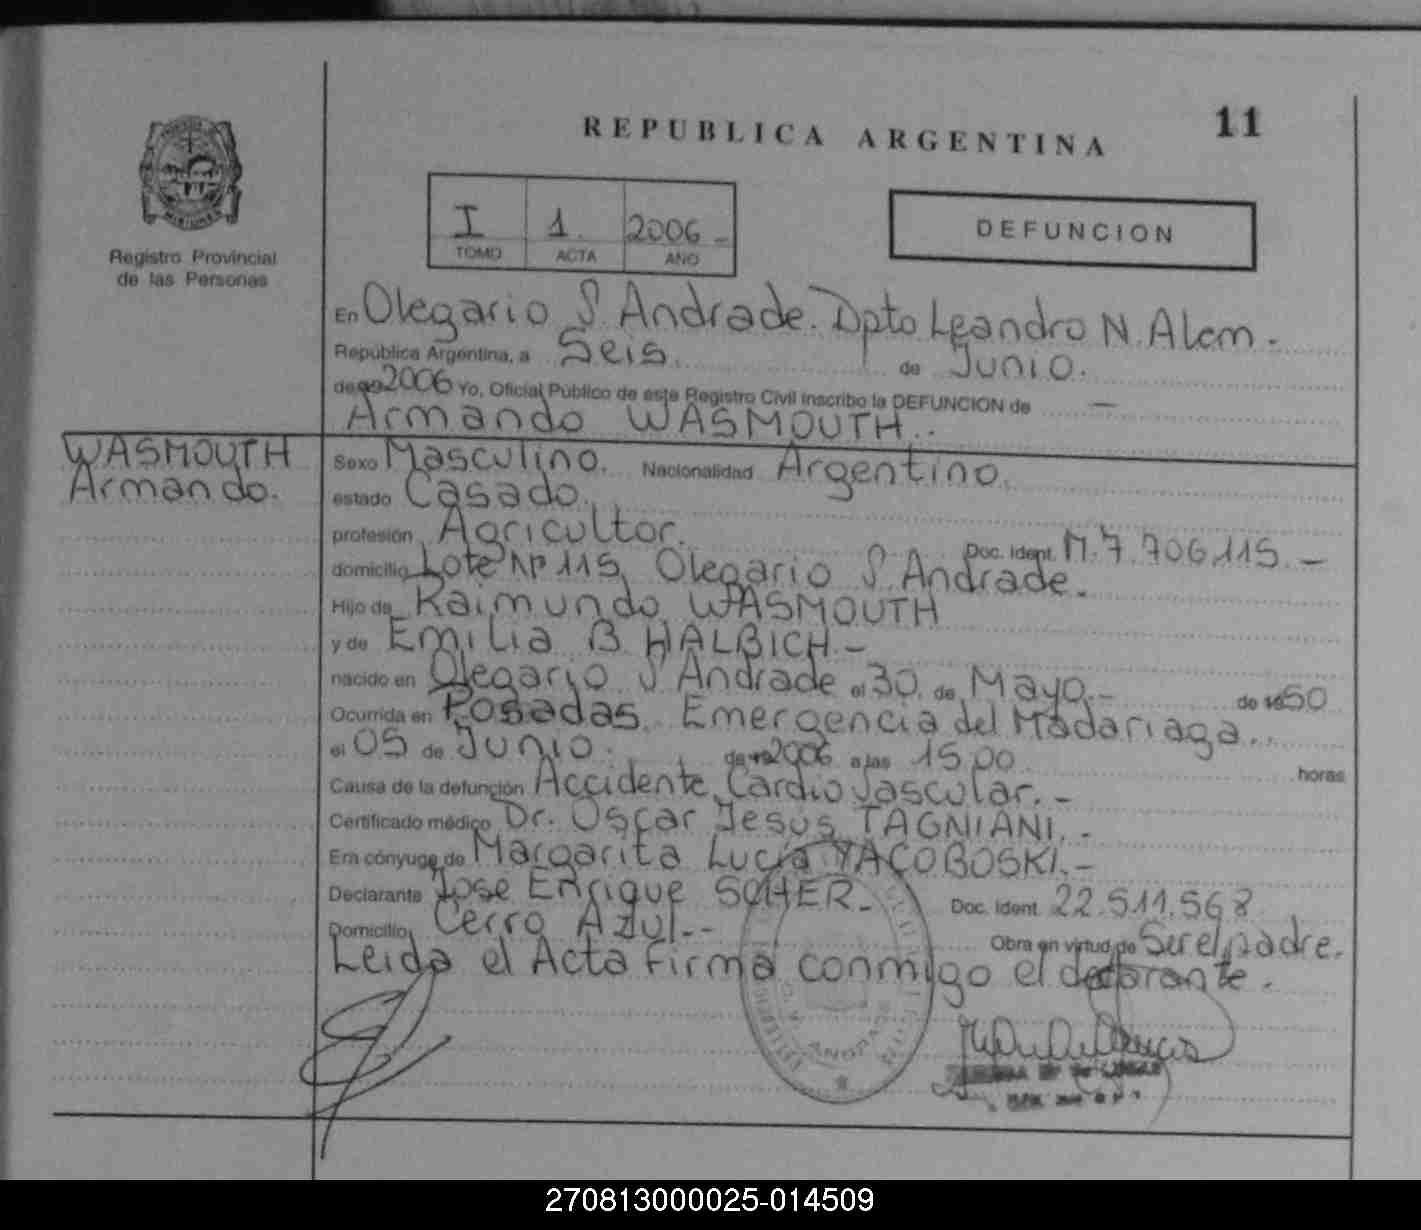 REPUBLICA ARGENTINA
11
MISIONES
Registro Provincial
de las Personas
I 1. 2006 -
TOMO ACTA AÑO
DEFUNCION
En Olegario S. Andrade. Dpto Leandro N. Alem.
República Argentina, a Seis. de Junio.
de 2006 Yo, Oficial Público de este Registro Civil inscribo la DEFUNCION de —
Armando WASMOUTH.
WASMOUTH
Armando.
Sexo Masculino. Nacionalidad Argentino.
estado Casado.
profesión Agricultor. Doc. Ident. M.7.706.115.-
domicilio Lote Nº 115, Olegario S. Andrade.
Hijo de Raimundo WASMOUTH
y de Emilia B HALBICH.-
nacido en Olegario S Andrade el 30. de Mayo.- de 1950
Ocurrida en Posadas. Emergencia del Madariaga..
el 05 de Junio. de 2006 a las 15.00 horas
Causa de la defunción Accidente Cardio Vascular.-
Certificado médico Dr. Oscar Jesus TAGNIANI.-
Era cónyuge de Margarita Lucía YACOBOSKI.-
Declarante Jose Enrique SCHER.- Doc. Ident. 22.511.568
Domicilio Cerro Azul.-- Obra en virtud de Ser el padre.
Leida el Acta firma conmigo el declarante.
270813000025-014509